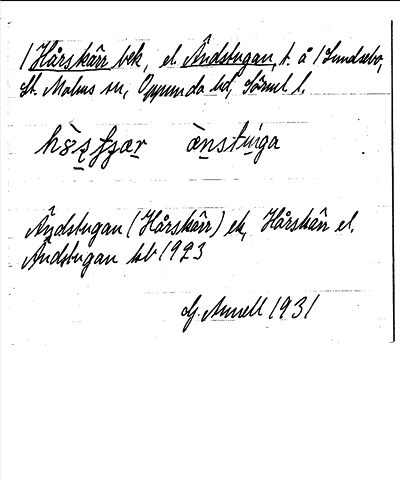 1 Hårskärr bek, el. Ändstugan, t. å 1 Sundsebo,
St. Malms sn, Oppunda hd, Sörml l.
änstu̱ga
Ändstugan (Hårskärr) ek, Hårskärr el.
Ändstugan hb 1923
G. Annell 1931